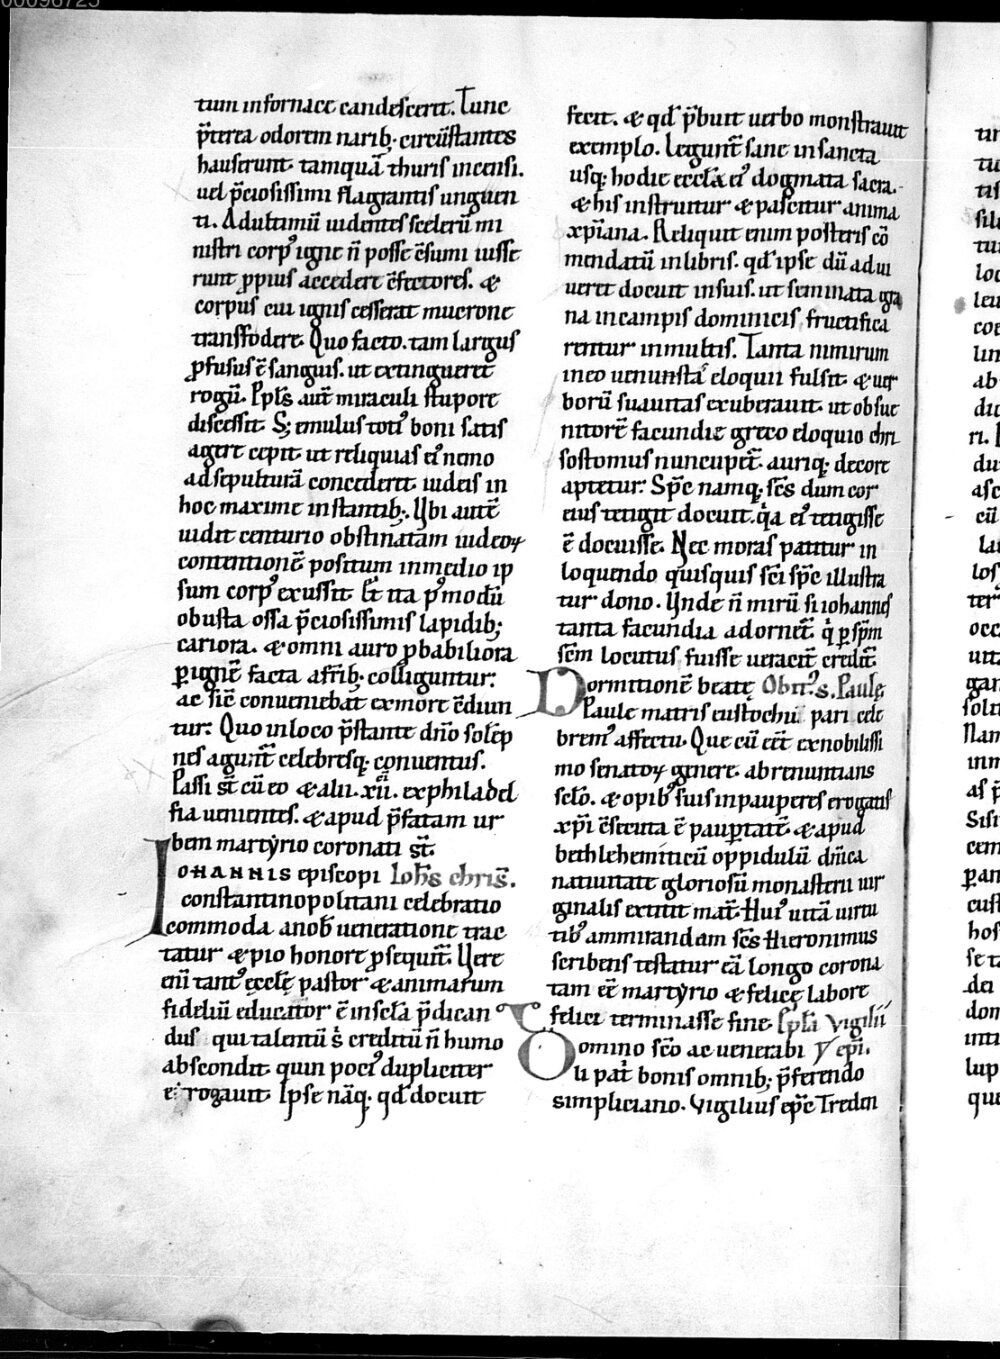 tum infornace candescerit. Tunc
p̄terea odorem narib; circūstantes
hauserunt. tamquā thuris incensi.
uel p̄ciosissimi flagrantis unguen
ti. Adultimū uidentes scelerū mi
nistri corpꝰ igne n̄ posse c̄sumi iusse
runt ꝓpius accedere c̄fectores. &
corpus cui ignis cesserat mucrone
transfodere. Quo facto. tam largus
ꝓfusus ē sanguis. ut extingueret
rogū. Ppl̄s aut̄ miraculi stupore
discessit. S; emulus totiꝰ boni satis
agere cepit. ut reliquias eiꝰ nemo
adsepulturā concederet. iudeis in
hoc maxime instantib;. Ubi autē
uidit centurio obstinatam iudeoꝝ
contentionē positum inmedio ip
sum corpꝰ exussit. Et ita pꝰmodū
obusta ossa p̄ciosissimis lapidib;
cariora. & omni auro ꝓbabiliora
ꝑ ignē facta afrīb; colliguntur:
ac sic̄ conueniebat exmore c̄diun
tur: Quo inloco p̄stante dn̄o solēp
nes agunt̄ celebresq; conuentus.
Passi st̄ cū eo & alii .xii. exphiladel
fia uenientes. & apud p̄fatam ur
bem martyrio coronati st̄.
IOHANNIS episcopi Ioh̄s chris̄.
constantinopolitani celebratio
commoda anob̄ ueneratione trac
tatur & pio honore ꝓsequit̄. Uere
eni tantꝰ ęcclę pastor & animarum
fideliū educator ē inscl̄a p̄dican
dus qui talentū s̄ creditū n̄ humo
abscondit. quin pociꝰ dupliciter
erogauit. Ipse nāq; qd̄ docuit
fecit. & qd̄ p̄buit uerbo monstrauit
exemplo. Legunt̄ sane insancta
usq; hodie eccl̄a eiꝰ dogmata sacra.
& his instruitur & pascitur anima
xp̄iana. Reliquit enim posteris cō
mendatū inlibris. qd̄ ipse dū adui
ueret docuit insuis. ut seminata gra
na incampis dominicis, fructifica
rentur inmultis. Tanta nimirum
ineo uenusta eloquii fulsit. & uer
borū suauitas exuberauit. ut obsuc
nitorē facundię greco eloquio chri
sostomus nuncupet̄. auriq; decore
aptetur: Sp̄c namq; sc̄s dum cor
eius tetigit docuit. q̓a eū tetigisse
ē docuisse. Nec moras patitur in
loquendo quisquis sc̄i sp̄c illustra
tur dono. Unde n̄ mirū si iohannes
tanta facundia adornet̄. q̓ ꝑ sp̄m
sc̄m locutus fuisse ueracit̄ credit̄.
Dormitionē beatę Obit'. S. Paulę
Paule matris eustochii pari cele
bremꝰ affectu. Que cū eēt exnobilissi
mo senatoꝝ genere. abrenuntians
sclo. & opibꝰ suis inpauperes erogatis
xp̄i c̄secuta ē pauꝑtatē. & apud
bethlehemiticū oppidulū dn̄ica
natiuitate gloriosū monasterii uir
ginalis extitit mat̄. Huiꝰ uitā uirtu
tibꝰ ammirandam sc̄s Hieronimus
scribens testatur eā longo corona
tam eē martyrio & felicę labore
felici terminasse fine. Epl̄a Vigilii
Domino sc̄o ac uenerabi epi.
li pat̄ bonis omnib; p̄ferendo
simpliciano. Vigilius ep̄c Triden